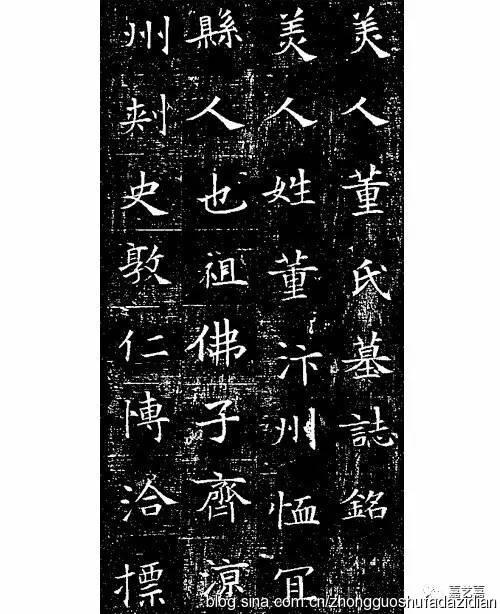 美人董氏墓誌銘
美人姓董汴州恤冝
縣人也祖佛子齊涼
州刾史敦仁愽洽標
blog.sina.com.cn/zhongguoshufadazidian